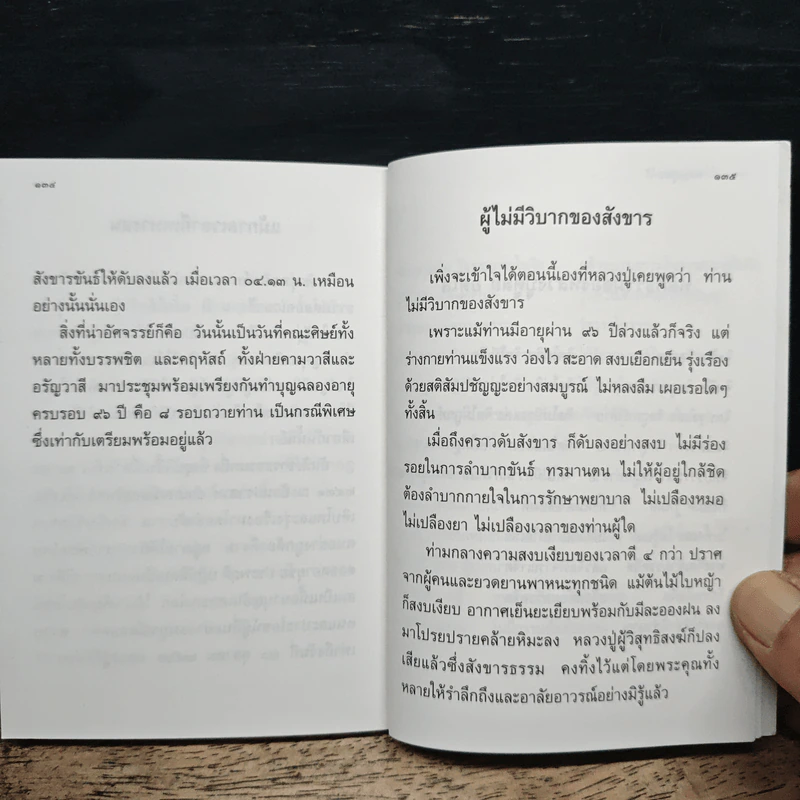 ๑๓๔
สังขารขันธ์ให้ดับลงแล้ว เมื่อเวลา ๐๔.๑๓ น. เหมือน
อย่างนั้นนั่นเอง
สิ่งที่น่าอัศจรรย์ก็คือ วันนั้นเป็นวันที่คณะศิษย์ทั้ง
หลายทั้งบรรพชิต และคฤหัสถ์ ทั้งฝ่ายคามวาสีและ
อรัญวาสี มาประชุมพร้อมเพรียงกันทำบุญฉลองอายุ
ครบรอบ ๙๖ ปี คือ ๘ รอบถวายท่าน เป็นกรณีพิเศษ
ซึ่งเท่ากับเตรียมพร้อมอยู่แล้ว
๑๓๕
ผู้ไม่มีวิบากของสังขาร
เพิ่งจะเข้าใจได้ตอนนี้เองที่หลวงปู่เคยพูดว่า ท่าน
ไม่มีวิบากของสังขาร
เพราะแม้ท่านมีอายุผ่าน ๙๖ ปีล่วงแล้วก็จริง แต่
ร่างกายท่านแข็งแรง ว่องไว สะอาด สงบเยือกเย็น รุ่งเรือง
ด้วยสติสัมปชัญญะอย่างสมบูรณ์ ไม่หลงลืม เผอเรอใดๆ
ทั้งสิ้น
เมื่อถึงคราวดับสังขาร ก็ดับลงอย่างสงบ ไม่มีร่อง
รอยในการลำบากขันธ์ ทรมานตน ไม่ให้ผู้อยู่ใกล้ชิด
ต้องลำบากกายใจในการรักษาพยาบาล ไม่เปลืองหมอ
ไม่เปลืองยา ไม่เปลืองเวลาของท่านผู้ใด
ท่ามกลางความสงบเงียบของเวลาตี ๔ กว่า ปราศ
จากผู้คนและยวดยานพาหนะทุกชนิด แม้ต้นไม้ใบหญ้า
ก็สงบเงียบ อากาศเย็นยะเยียบพร้อมกับมีละอองฝน ลง
มาโปรยปรายคล้ายหิมะลง หลวงปู่ผู้วิสุทธิสงฆ์ก็ปลง
เสียแล้วซึ่งสังขารธรรม คงทิ้งไว้แต่โดยพระคุณทั้ง
หลายให้รำลึกถึงและอาลัยอาวรณ์อย่างมิรู้แล้ว